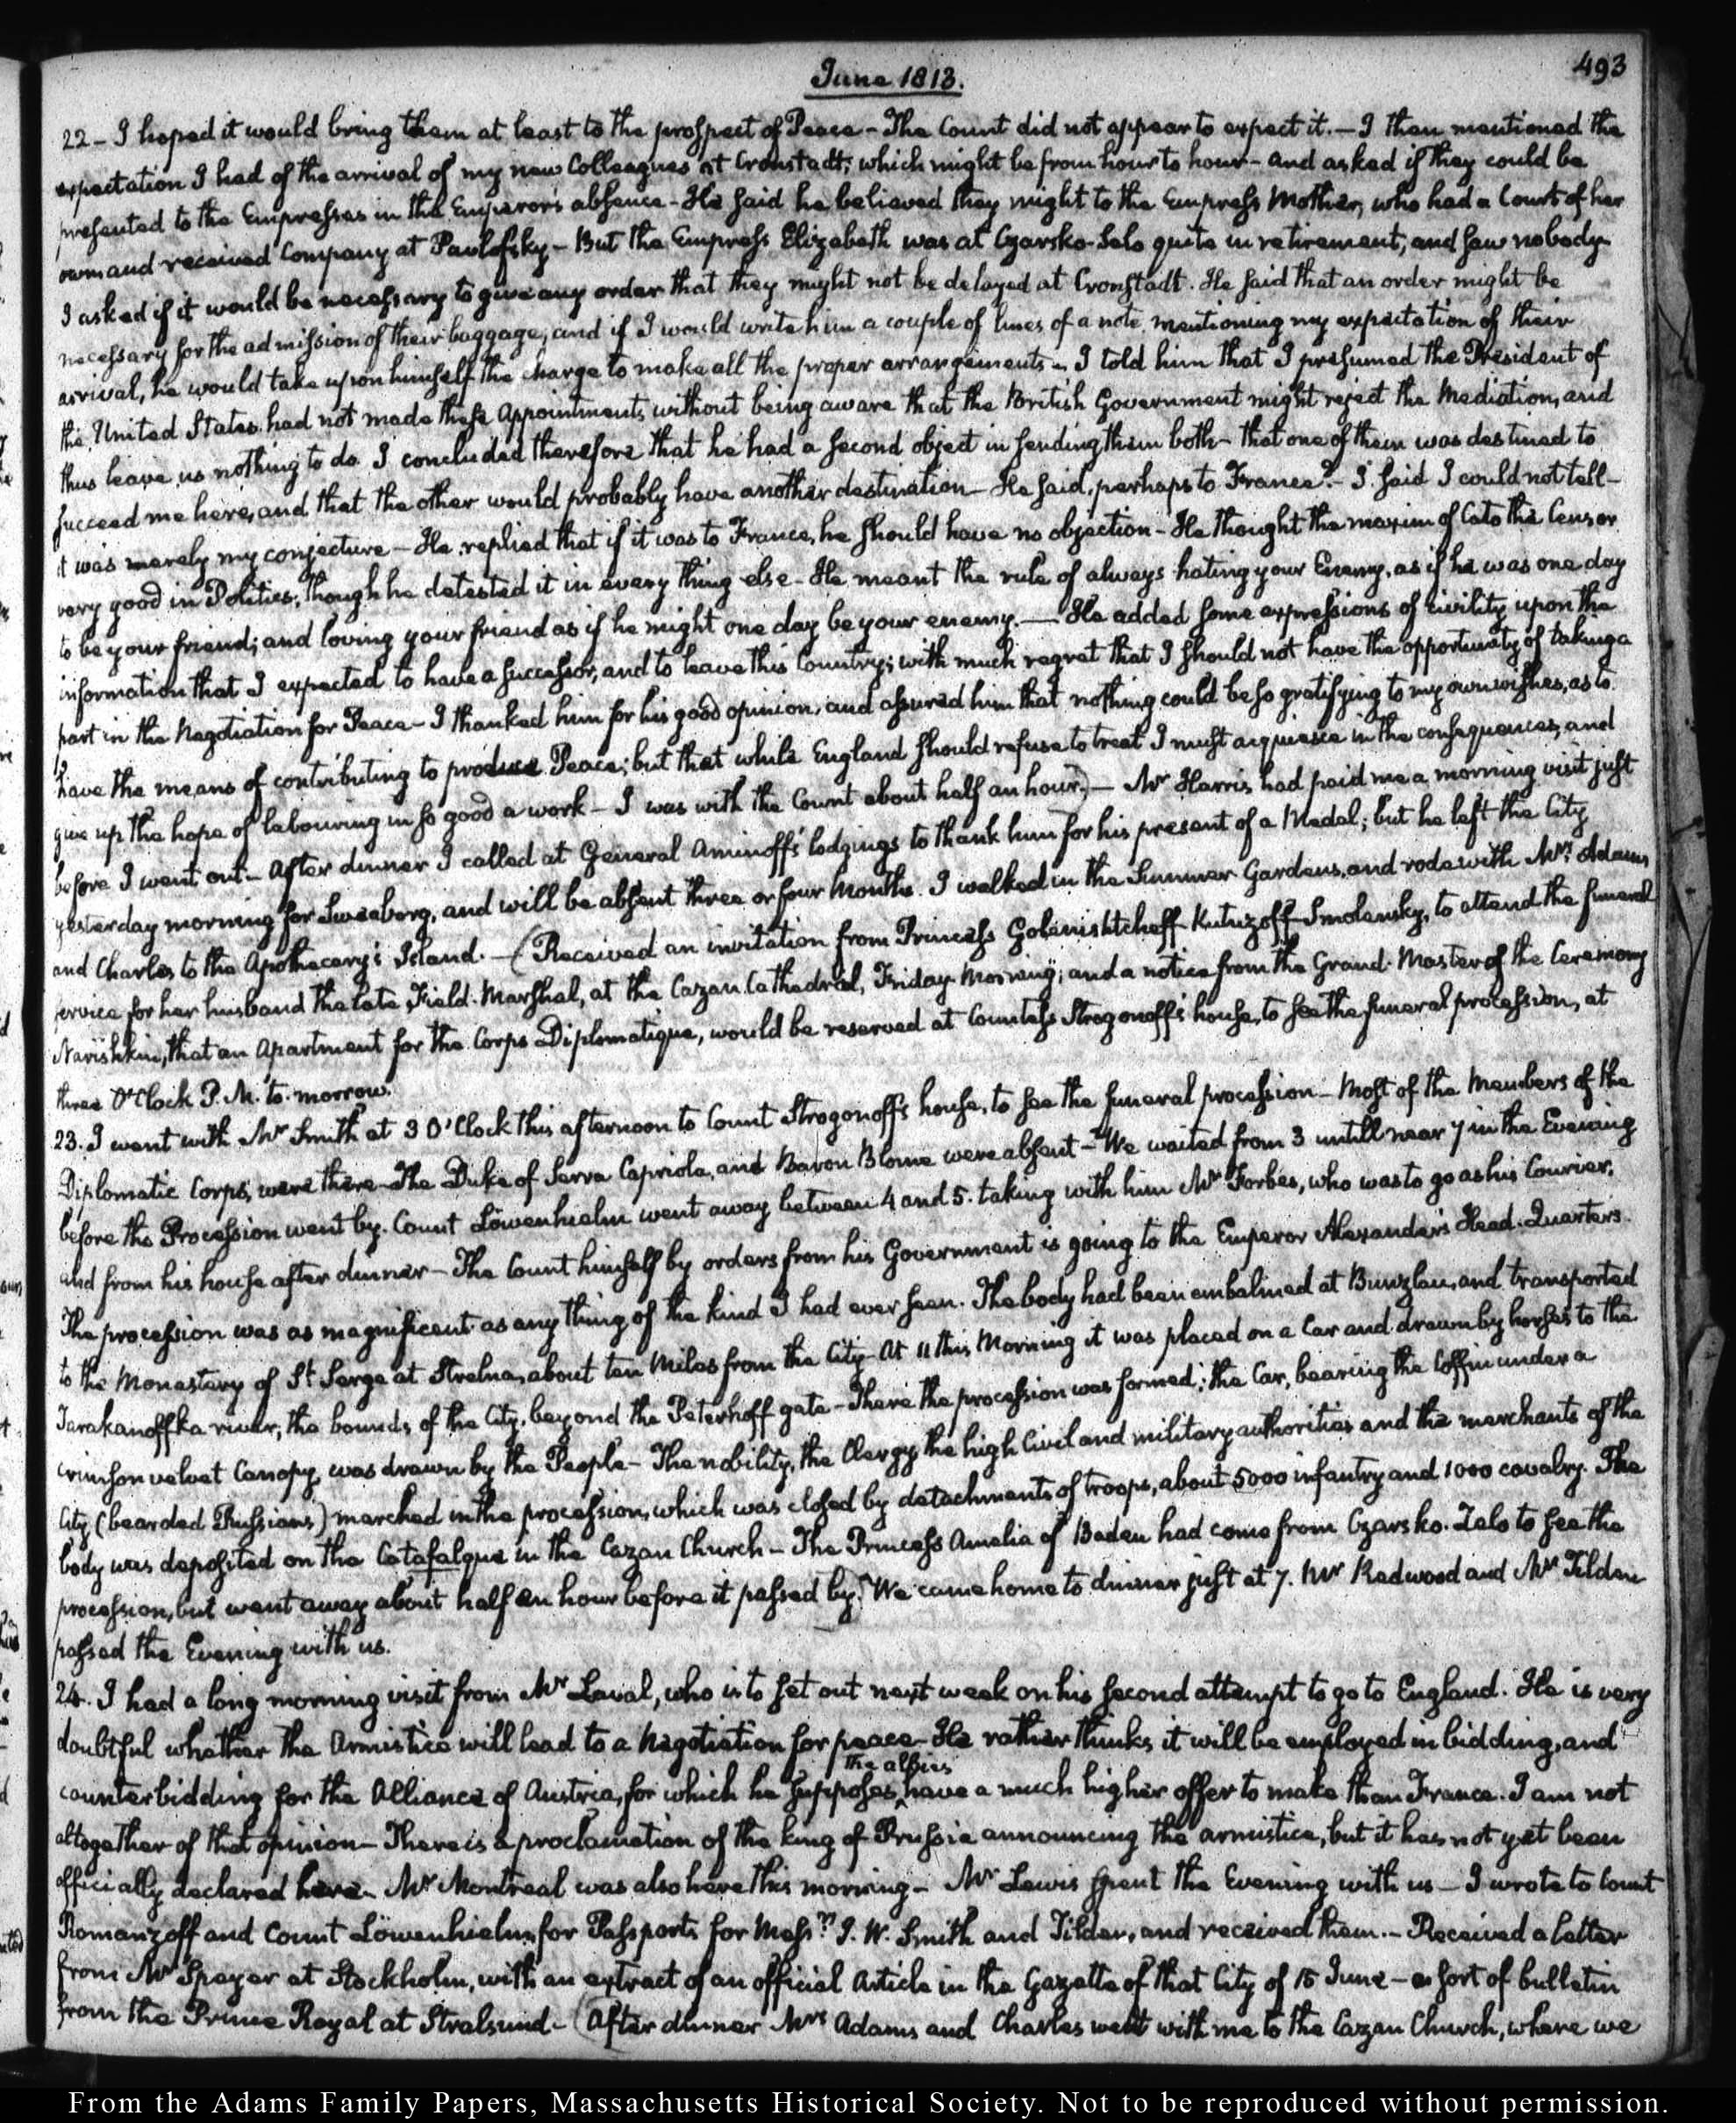 493
June 1813.
22 - I hoped it would bring them at least to the prospect of Peace - The Count did not appear to expect it. - I then mentioned the
expectation I had of the arrival of my new Colleagues at Cronstadt; which might be from hour to hour - and asked if they could be
presented to the Empresses in the Emperor's absence - He said he believed they might to the Empress Mother, who had a Court of her
own and received Company at Pavlofsky - But the Empress Elizabeth was at Czarsko-Selo quite in retirement, and saw nobody.
I asked if it would be necessary to give any order that they might not be delayed at Cronstadt. He said that an order might be
necessary for the admission of their baggage, and if I would write him a couple of lines of a note, mentioning my expectation of their
arrival, he would take upon himself the charge to make all the proper arrangements - I told him that I presumed the President of
the United States had not made these Appointments without being aware that the British Government might reject the Mediation, and
thus leave us nothing to do. I concluded therefore that he had a second object in sending them both - that one of them was destined to
succeed me here, and that the other would probably have another destination - He said, perhaps to France? - I said I could not tell -
it was merely my conjecture - He replied that if it was to France, he should have no objection - He thought the maxim of Cato the Censor
very good in Politics, though he detested it in every thing else - He meant the rule of always hating your Enemy, as if he was one day
to be your friend; and loving your friend as if he might one day be your enemy. - He added some expressions of civility upon the
information that I expected to have a successor, and to leave this Country; with much regret that I should not have the opportunity of taking a
part in the Negotiation for Peace - I thanked him for his good opinion, and assured him that nothing could be so gratifying to my own wishes, as to
have the means of contributing to produce Peace; but that while England should refuse to treat I must acquiesce in the consequences, and
give up the hope of labouring in so good a work - I was with the Count about half an hour.) - Mr Harris had paid me a morning visit just
before I went out - After dinner I called at General Aminoff's lodgings to thank him for his present of a Medal; but he left the City
yesterday morning for Sweaborg, and will be absent three or four Months. I walked in the Summer Gardens, and rode with Mrs Adams
and Charles to the Apothecary's Island. - (Received an invitation from Princess Golenishtcheff-Kutuzoff-Smolensky, to attend the funeral
service for her husband the late Field-Marshal, at the Cazan Cathedral, Friday Morning; and a notice from the Grand-Master of the Ceremony
Narishkin, that an Apartment for the Corps Diplomatique, would be reserved at Countess Strogonoff's house, to see the funeral procession, at
three O'Clock P.M. to-morrow.
23. I went with Mr Smith at 3 O'Clock this afternoon to Count Strogonoff's house, to see the funeral procession - Most of the Members of the
Diplomatic Corps, were there - The Duke of Serra Capriola, and Baron Blome were absent - We waited from 3 untill near 7 in the Evening
before the Procession went by. Count Löwenhielm went away between 4 and 5. taking with him Mr Forbes, who was to go as his Courier,
and from his house after dinner - The Count himself by orders from his Government is going to the Emperor Alexander's Head-Quarters.
The procession was as magnificent as any thing of the kind I had ever seen. The body had been embalmed at Bunzlau, and transported
to the Monastery of St Serge at Strelna, about ten Miles from the City - At 11 this Morning it was placed on a Car and drawn by horses to the
Tarakanoffka river, the bounds of the City, beyond the Peterhoff gate - There the procession was formed; the Car, bearing the Coffin under a
crimson velvet Canopy, was drawn by the People - The nobility, the Clergy, the high Civil and military authorities and the merchants of the
City (bearded Russians) marched in the procession, which was closed by detachments of troops, about 5000 infantry and 1000 cavalry. The
body was deposited on the Catafalque in the Cazan Church - The Princess Amelia of Baden had come from Czarsko-Zelo to see the
procession, but went away about half an hour before it passed by. We came home to dinner just at 7. Mr Redwood and Mr Tilden
passed the Evening with us.
24. I had a long morning visit from Mr Laval, who is to set out next week on his second attempt to go to England. He is very
doubtful whether the Armistice will lead to a Negotiation for peace - He rather thinks it will be employed in bidding, and
counterbidding for the Alliance of Austria, for which he supposes ^the allies have a much higher offer to make than France. I am not
altogether of that opinion - There is a proclamation of the king of Prussia announcing the armistice, but it has not yet been
officially declared here - Mr Montreal was also here this morning - Mr Lewis spent the Evening with us - I wrote to Count
Romanzoff and Count Löwenhielm, for Passports for Messrs J. W. Smith and Tilden, and received them. - Received a letter
from Mr Speyer at Stockholm, with an extract of an official Article in the Gazette of that City of 15 June - a sort of bulletin
from the Prince Royal at Stralsund - (After dinner Mrs Adams and Charles went with me to the Cazan Church, where we
From the Adams Family Papers, Massachusetts Historical Society. Not to be reproduced without permission.